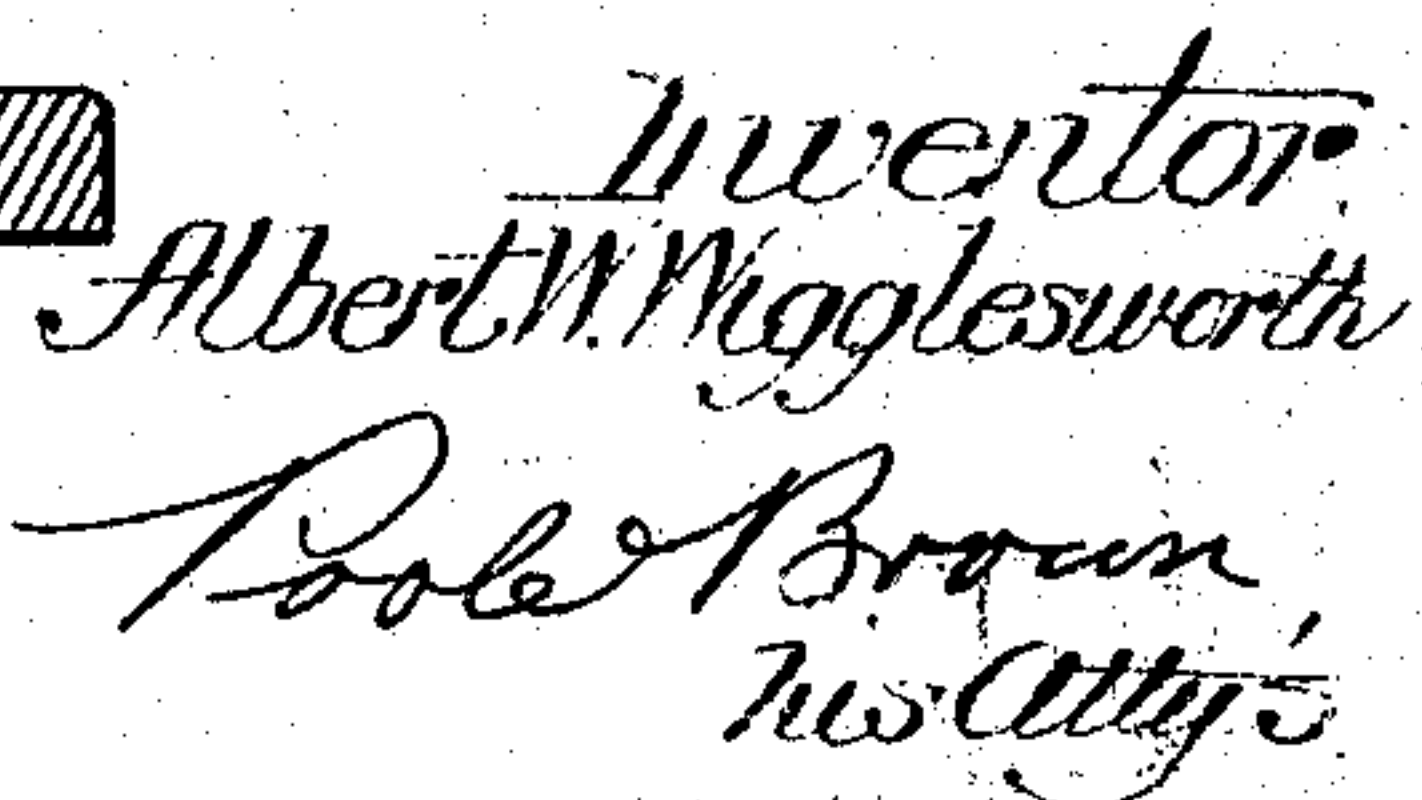 Inventor.
Albert W. Wigglesworth
Poole & Brown
his Atty's